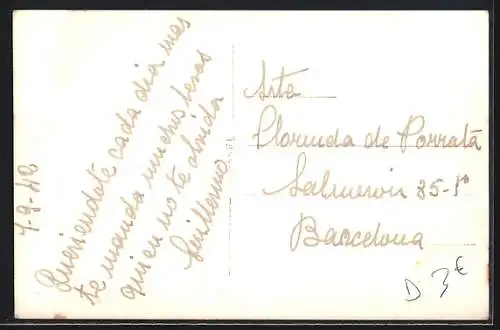 7-9-42
Queriendote cada dia mas
te manda muchis besos
quien no te olvida
Guillermo
Srta
Florinda de Porratá
Salmerón 35-1º
Barcelona
D 3€